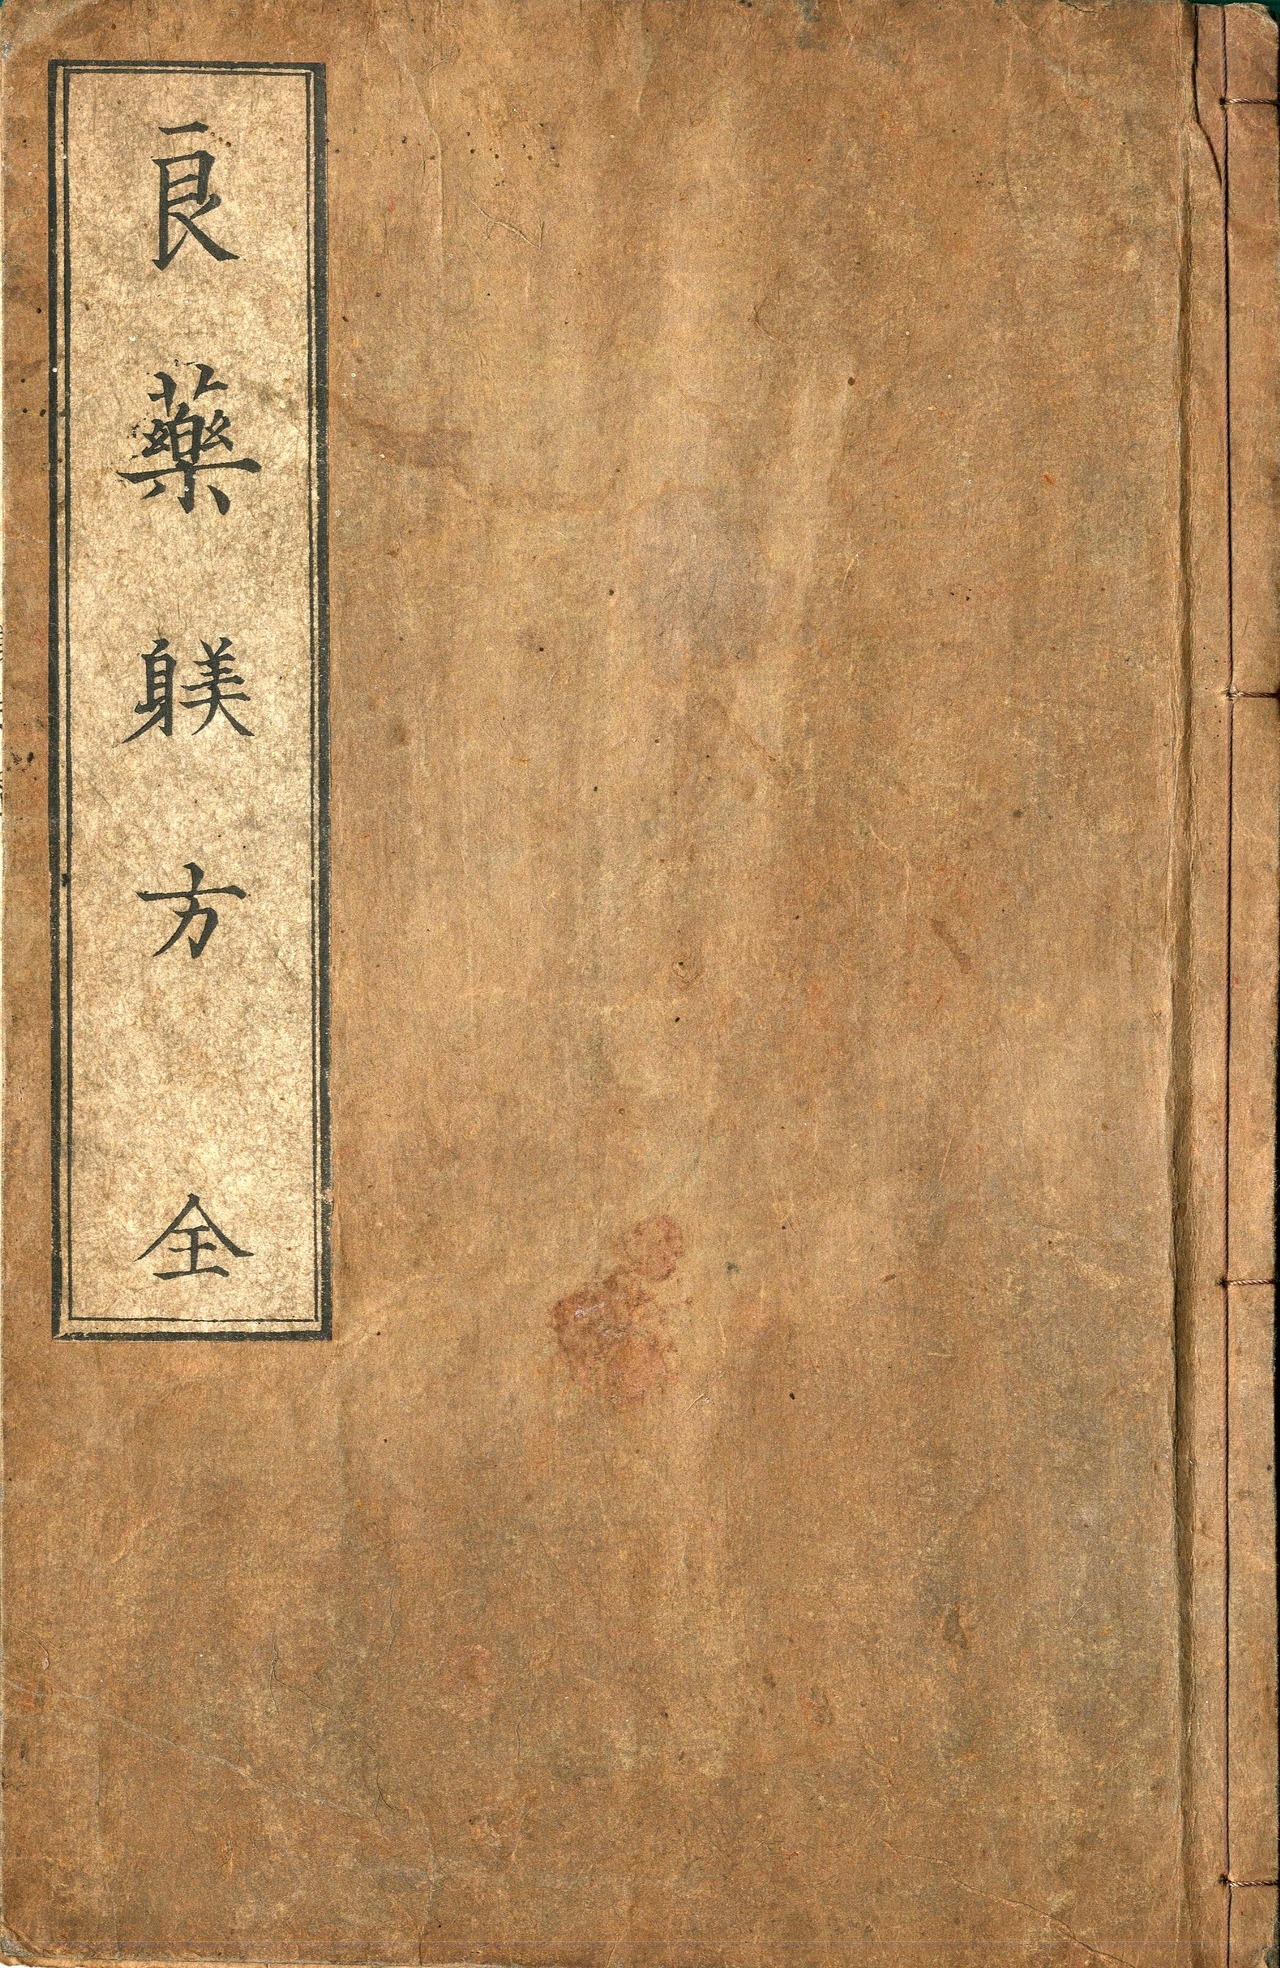 良藥躾方 全